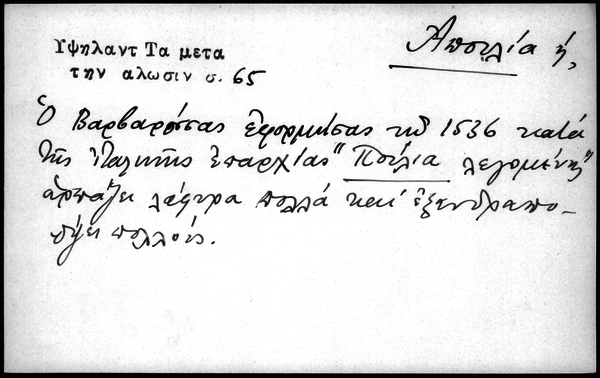 Υψηλαντ Τα μετα
την αλωσιν σ. 65
Ἀπουλία ἡ,
Ὁ Βαρβαρόσσας ἐφορμήσας τῷ 1536 κατά
τῆς Ἰταλικῆς ἐπαρχίας "Πούλια λεγομένης"
ἁρπάζει λάφυρα πολλά καί ἐξανδραπο-
δίζει πολλούς.